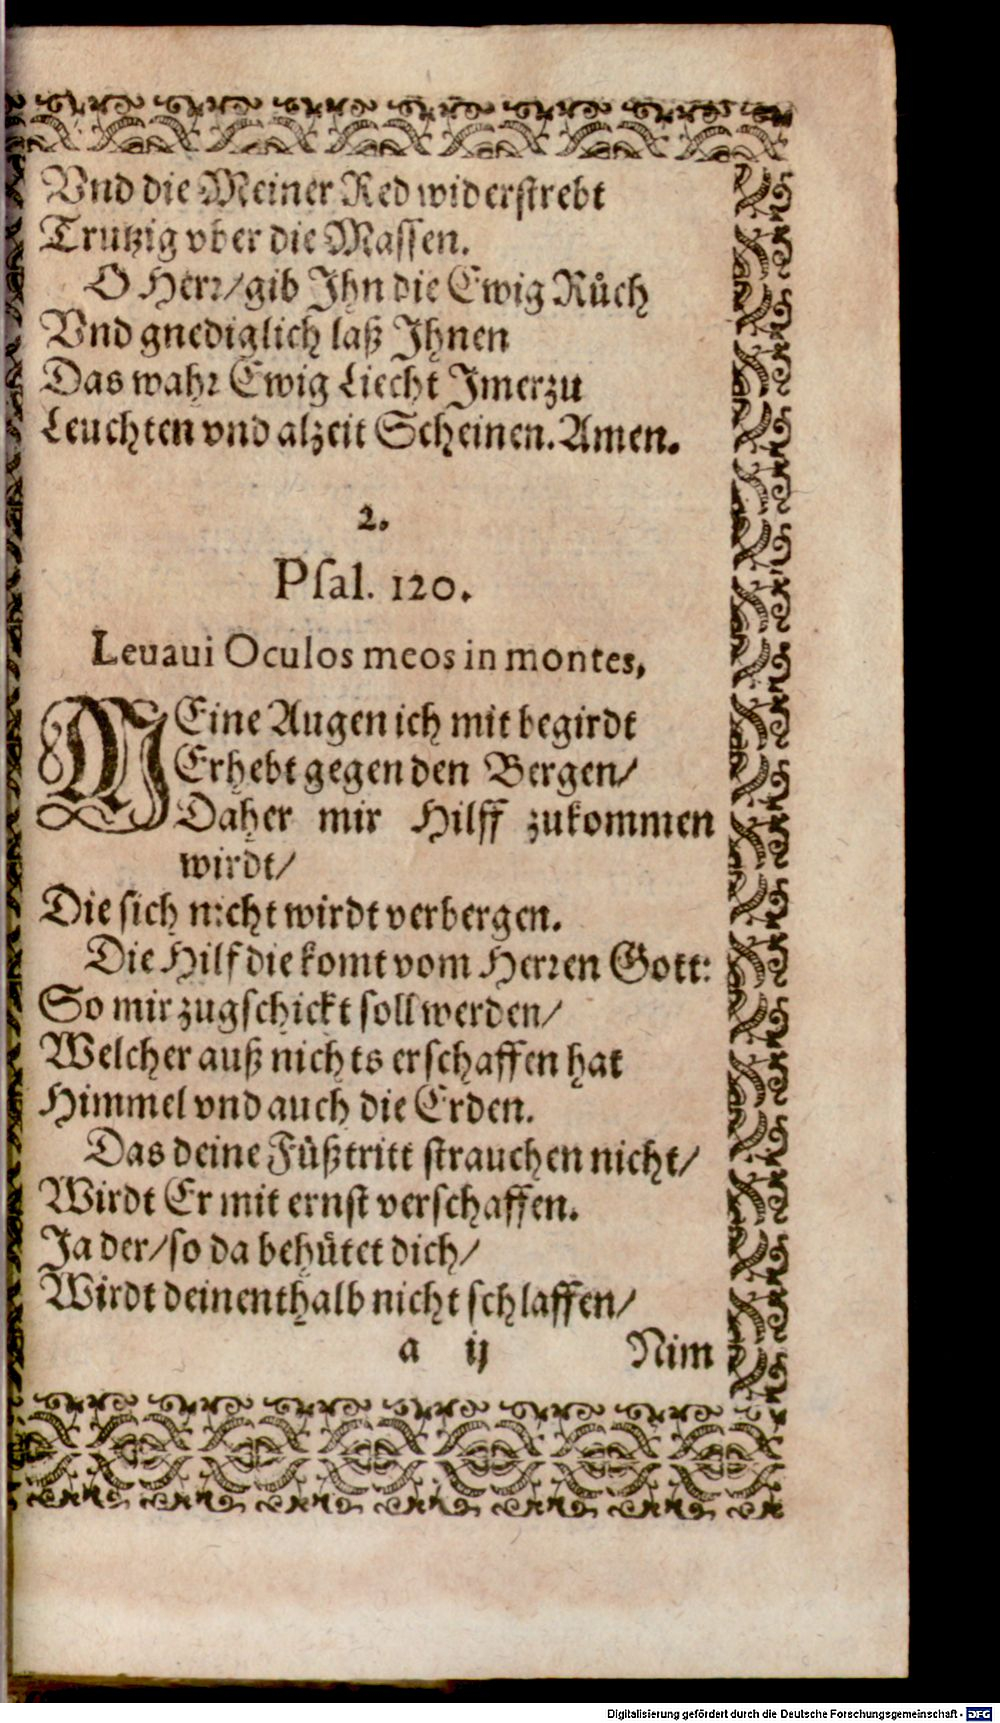 Vnd die Meiner Red widerstrebt
Trutzig vber die Massen.
O Herr/gib Jhn die Ewig Růch
Vnd gnediglich laß Jhnen
Das wahr Ewig Liecht Jmerzu
Leuchten vnd alzeit Scheinen. Amen.
2.
Psal. 120.
Leuaui Oculos meos in montes,
MEine Augen ich mit begirdt
Erhebt gegen den Bergen/
Daher mir Hilff zukommen
wirdt/
Die sich nicht wirdt verbergen.
Die Hilf die komt vom Herren Gott:
So mir zugschickt soll werden/
Welcher auß nichts erschaffen hat
Himmel vnd auch die Erden.
Das deine Füßtritt strauchen nicht/
Wirdt Er mit ernst verschaffen.
Ja der/so da behütet dich/
Wirdt deinenthalb nicht schlaffen/
a ij Nim
Digitalisierung gefördert durch die Deutsche Forschungsgemeinschaft - DFG